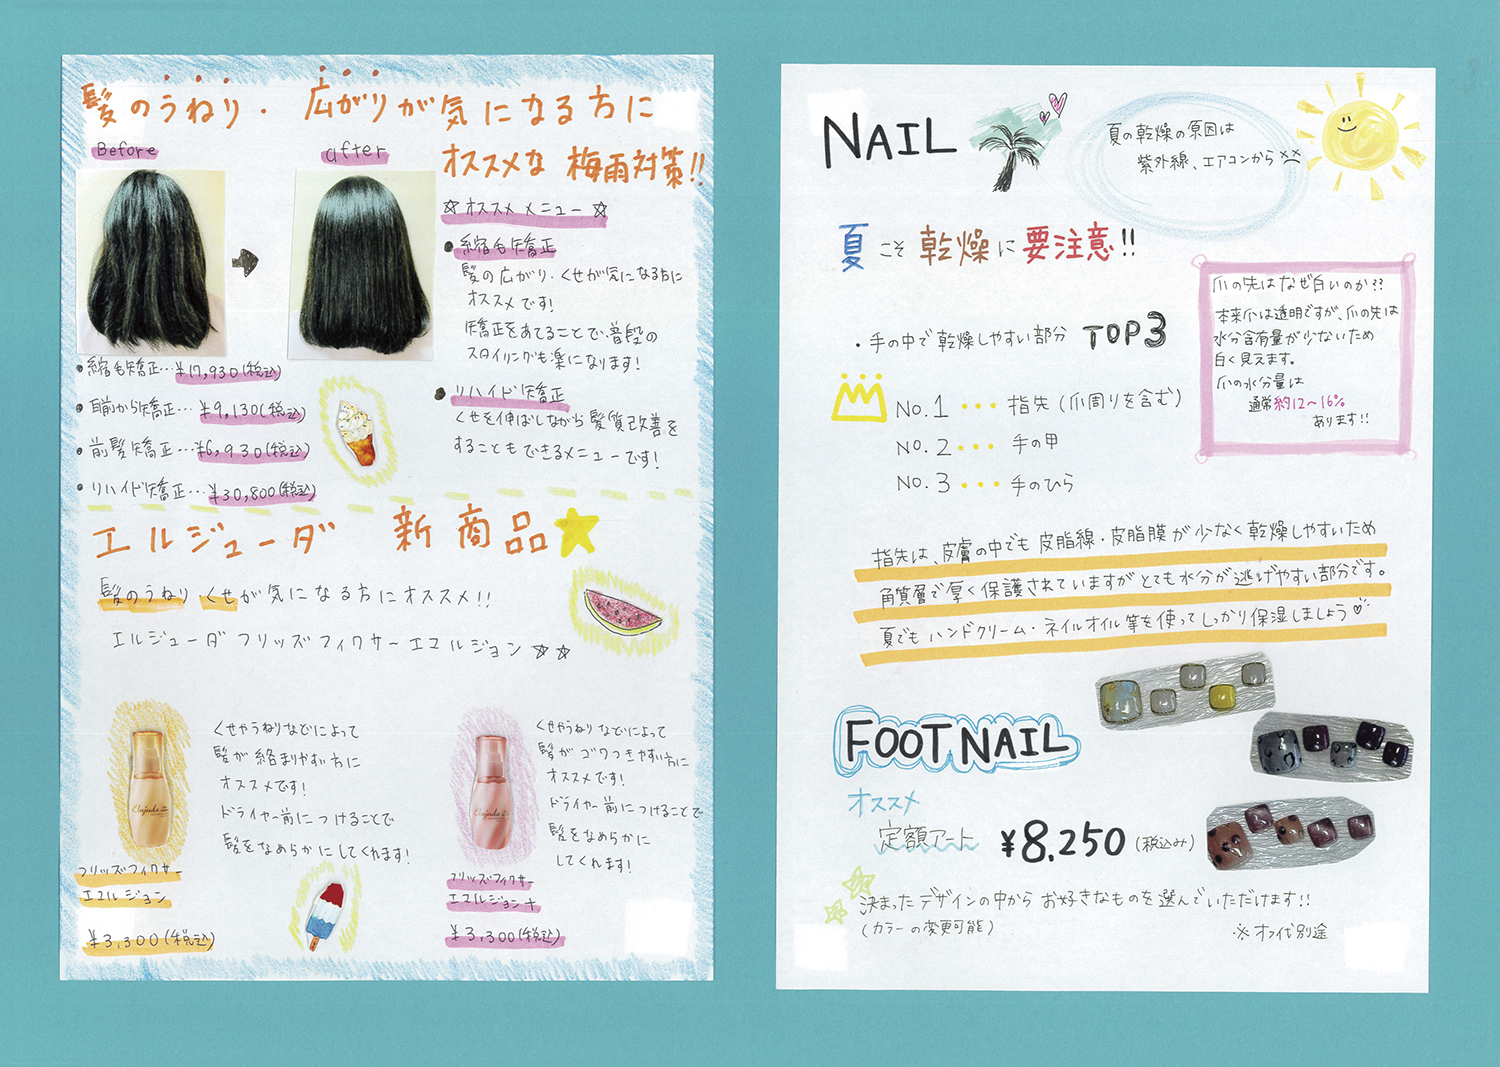 髪のうねり・広がりが気になる方に
オススメな 梅雨対策!!
Before
after
☆オススメメニュー☆
●縮毛矯正
髪の広がり・くせが気になる方に
オススメです!
矯正をあてることで、普段の
スタイリングも楽になります!
●リハイド矯正
くせを伸ばしながら髪質改善を
することもできるメニューです!
●縮毛矯正…¥17,930(税込)
●前から矯正…¥9,130(税込)
●前髪矯正…¥6,930(税込)
●リハイド矯正…¥30,800(税込)
エルジューダ 新商品
髪のうねり くせが気になる方にオススメ!!
エルジューダ フリッズフィクサーエマルジョン☆☆
くせやうねりなどによって
髪が絡まりやすい方に
オススメです!
ドライヤー前につけることで
髪をなめらかにしてくれます!
フリッズフィクサー
エマルジョン
¥3,300(税込)
くせやうねりなどによって
髪がゴワつきやすい方に
オススメです!
ドライヤー前につけることで
髪をなめらかに
してくれます!
フリッズフィクサー
エマルジョン+
¥3,300(税込)
NAIL
夏の乾燥の原因は
紫外線、エアコンから
夏こそ乾燥に要注意!!
・手の中で乾燥しやすい部分 TOP3
No.1 ・・・ 指先(爪周りを含む)
No.2 ・・・ 手の甲
No.3 ・・・ 手のひら
爪の先はなぜ白いのか??
本来爪は透明ですが、爪の先は
水分含有量が少ないため
白く見えます。
爪の水分量は
通常約12~16%
あります!!
指先は、皮膚の中でも皮脂線・皮脂膜が少なく乾燥しやすいため
角質層で厚く保護されていますがとても水分が逃げやすい部分です。
夏でもハンドクリーム・ネイルオイル等を使ってしっかり保湿しましょう♡
FOOT NAIL
オススメ
定額アート ¥8,250(税込み)
決まったデザインの中からお好きなものを選んでいただけます!!
(カラーの変更可能)
※オフ代別途